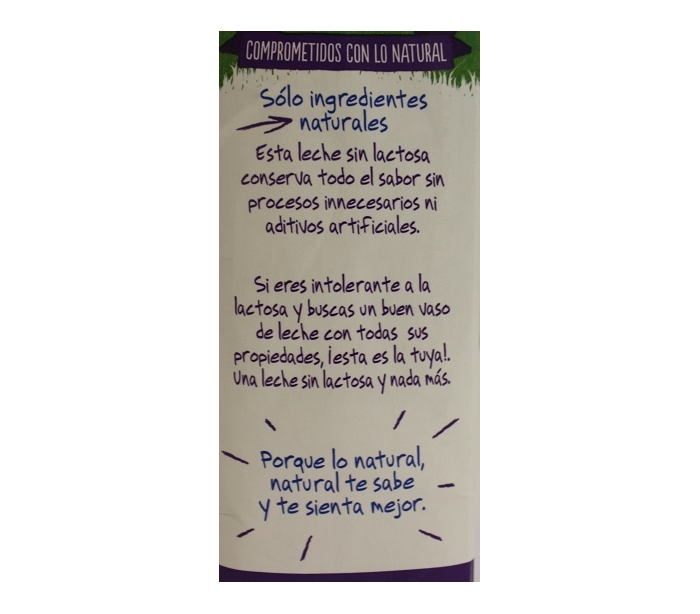 COMPROMETIDOS CON LO NATURAL
Sólo ingredientes
naturales
Esta leche sin lactosa
conserva todo el sabor sin
procesos innecesarios ni
aditivos artificiales.
Si eres intolerante a la
lactosa y buscas un buen vaso
de leche con todas sus
propiedades, ¡esta es la tuya!.
Una leche sin lactosa y nada más.
Porque lo natural,
natural te sabe
y te sienta mejor.